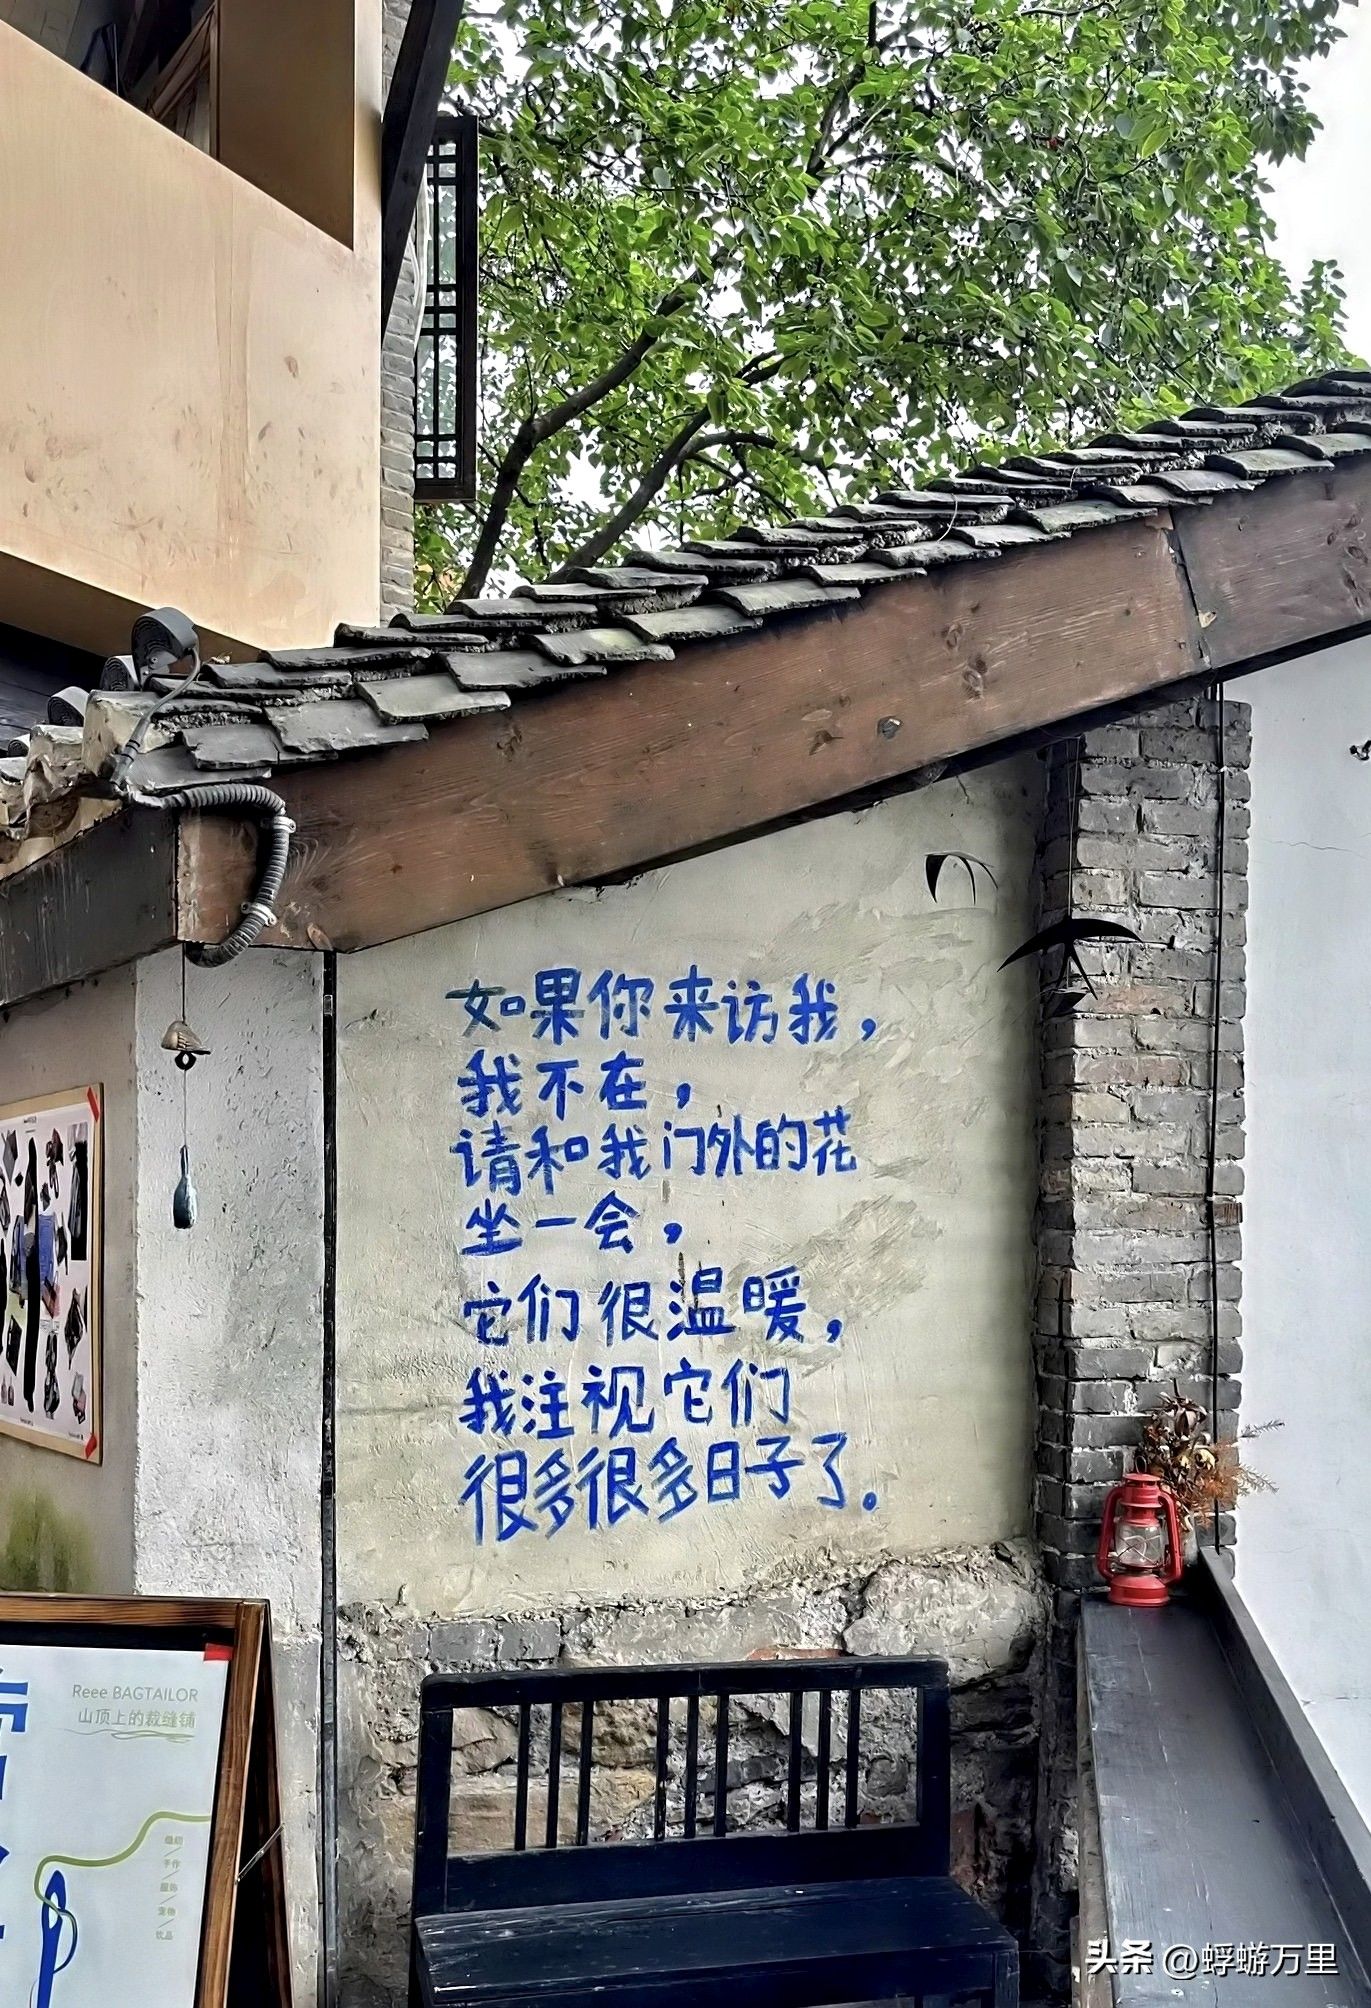 如果你来访我，
我不在，
请和我门外的花
坐一会，
它们很温暖，
我注视它们
很多很多日子了。
Reee BAGTAILOR
山顶上的裁缝铺
手作
服饰
宠物
饮品
头条 @蜉蝣万里